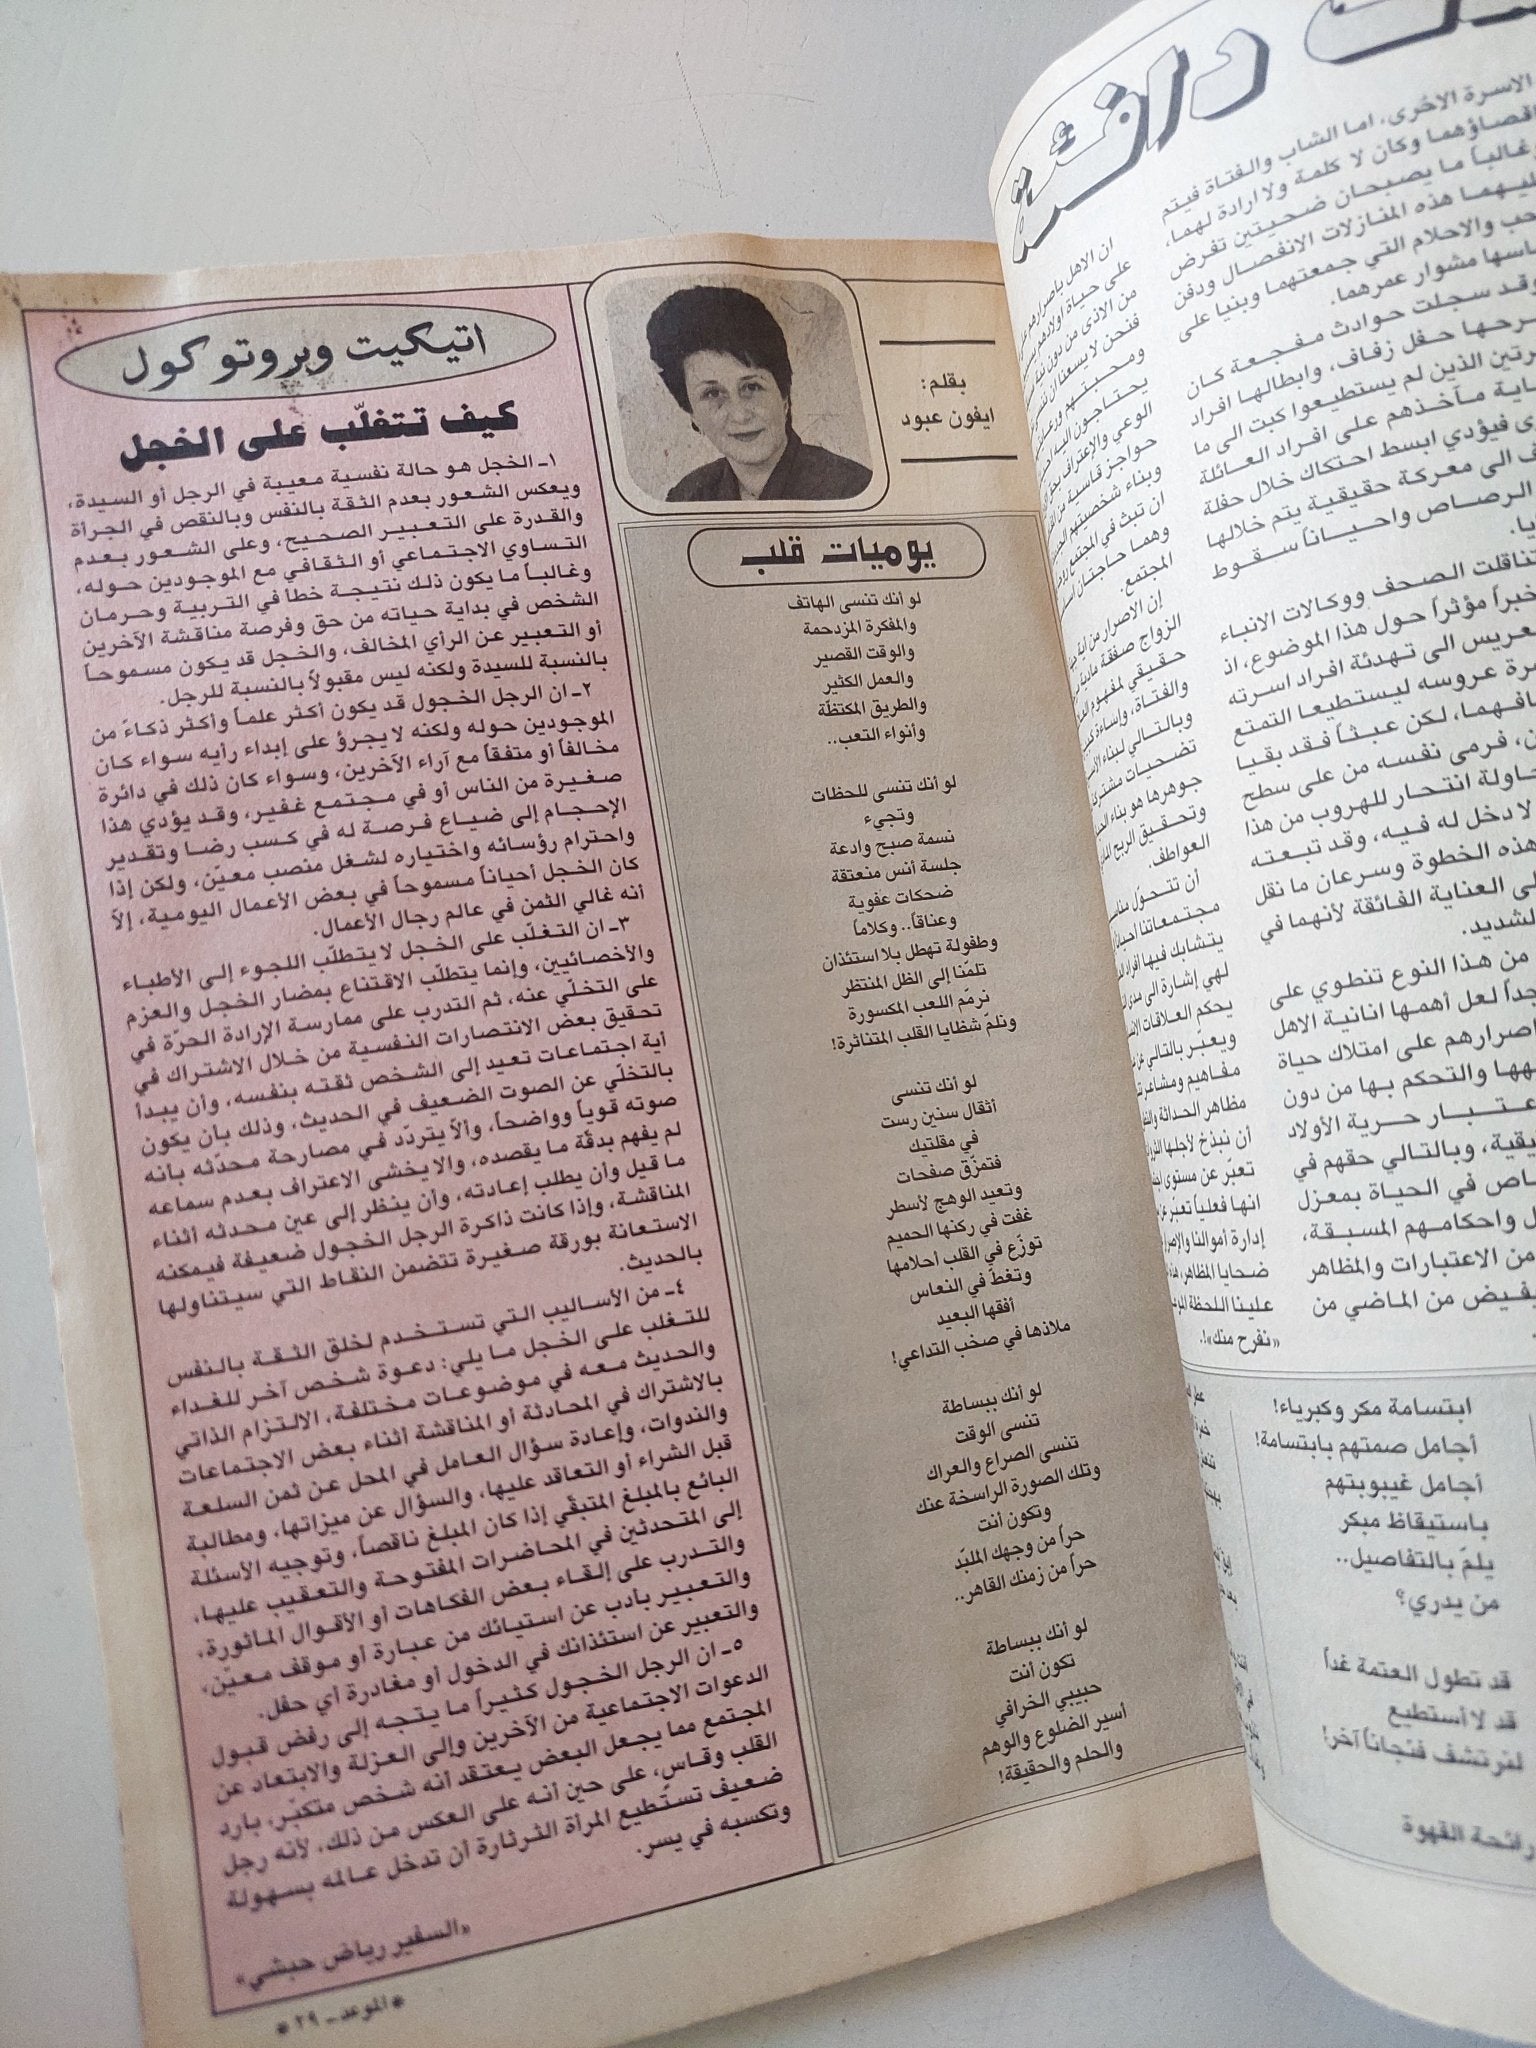 اتيكيت وبروتوكول
كيف تتغلّب على الخجل
١ـ الخجل هو حالة نفسية معيبة في الرجل أو السيدة،
ويعكس الشعور بعدم الثقة بالنفس وبالنقص في الجرأة
والقدرة على التعبير الصحيح، وعلى الشعور بعدم
التساوي الاجتماعي أو الثقافي مع الموجودين حوله،
وغالباً ما يكون ذلك نتيجة خطأ في التربية وحرمان
الشخص في بداية حياته من حق وفرصة مناقشة الآخرين
أو التعبير عن الرأي المخالف، والخجل قد يكون مسموحاً
بالنسبة للسيدة ولكنه ليس مقبولاً بالنسبة للرجل.
٢ـ ان الرجل الخجول قد يكون أكثر علماً وأكثر ذكاءً من
الموجودين حوله ولكنه لا يجرؤ على إبداء رأيه سواء كان
مخالفاً أو متفقاً مع آراء الآخرين، وسواء كان ذلك في دائرة
صغيرة من الناس أو في مجتمع غفير، وقد يؤدي هذا
الإحجام إلى ضياع فرصة له في كسب رضا وتقدير
واحترام رؤسائه واختياره لشغل منصب معيّن، ولكن إذا
كان الخجل أحياناً مسموحاً في بعض الأعمال اليومية، إلاّ
أنه غالي الثمن في عالم رجال الأعمال.
٣ـ ان التغلّب على الخجل لا يتطلّب اللجوء إلى الأطباء
والأخصائيين، وإنما يتطلّب الاقتناع بمضار الخجل والعزم
على التخلّي عنه، ثم التدرب على ممارسة الإرادة الحرّة في
تحقيق بعض الانتصارات النفسية من خلال الاشتراك في
أية اجتماعات تعيد إلى الشخص ثقته بنفسه، وأن يبدأ
بالتخلّي عن الصوت الضعيف في الحديث، وذلك بأن يكون
صوته قوياً وواضحاً، وألاّ يتردّد في مصارحة محدّثه بأنه
لم يفهم بدقّة ما يقصده، والا يخشى الاعتراف بعدم سماعه
ما قيل وأن يطلب إعادته، وأن ينظر إلى عين محدثه أثناء
المناقشة، وإذا كانت ذاكرة الرجل الخجول ضعيفة فيمكنه
الاستعانة بورقة صغيرة تتضمن النقاط التي سيتناولها
بالحديث.
٤ـ من الأساليب التي تستخدم لخلق الثقة بالنفس
للتغلب على الخجل ما يلي: دعوة شخص آخر للغداء
والحديث معه في موضوعات مختلفة، الالتزام الذاتي
بالاشتراك في المحادثة أو المناقشة أثناء بعض الاجتماعات
والندوات، وإعادة سؤال العامل في المحل عن ثمن السلعة
قبل الشراء أو التعاقد عليها، والسؤال عن ميزاتها، ومطالبة
البائع بالمبلغ المتبقّي إذا كان المبلغ ناقصاً، وتوجيه الأسئلة
إلى المتحدثين في المحاضرات المفتوحة والتعقيب عليها،
والتدرب على إلقاء بعض الفكاهات أو الأقوال المأثورة،
والتعبير بأدب عن استيائك من عبارة أو موقف معيّن،
والتعبير عن استئذانك في الدخول أو مغادرة أي حفل.
٥ـ ان الرجل الخجول كثيراً ما يتجه إلى رفض قبول
الدعوات الاجتماعية من الآخرين وإلى العزلة والابتعاد عن
المجتمع مما يجعل البعض يعتقد أنه شخص متكبّر، بارد
القلب وقاس، على حين أنه على العكس من ذلك، لأنه رجل
ضعيف تستطيع المرأة الثرثارة أن تدخل عالمه بسهولة
وتكسبه في يسر.
«السفير رياض حبشي»
* الموعد ـ ٢٩ *
بقلم:
ايفون عبود
يوميات قلب
لو أنك تنسى الهاتف
والمفكرة المزدحمة
والوقت القصير
والعمل الكثير
والطريق المكتظّة
وأنواء التعب..
لو أنك تنسى للحظات
وتجيء
نسمة صبح وادعة
جلسة أنس منعتقة
ضحكات عفوية
وعناقاً.. وكلاماً
وطفولة تهطل بلا استئذان
تلمّنا إلى الظل المنتظر
نرمّم اللعب المكسورة
ونلمّ شظايا القلب المتناثرة!
لو أنك تنسى
أثقال سنين رست
في مقلتيك
فتمزّق صفحات
وتعيد الوهج لأسطر
غفت في ركنها الحميم
توزّع في القلب أحلامها
وتغطّ في النعاس
أفقها البعيد
ملاذها في صخب التداعي!
لو أنك ببساطة
تنسى الوقت
تنسى الصراع والعراك
وتلك الصورة الراسخة عنك
وتكون أنت
حراً من وجهك الملبّد
حراً من زمنك القاهر..
لو أنك ببساطة
تكون أنت
حبيبي الخرافي
أسير الضلوع والوهم
والحلم والحقيقة!
دافئة
الاسرة الاخرى، اما الشاب والفتاة فيتم
اقصاؤهما وكأن لا كلمة ولا ارادة لهما،
وغالباً ما يصبحان ضحيتين تفرض
عليهما هذه المنازلات الانفصال ودفن
الحب والاحلام التي جمعتهما وبنيا على
اساسها مشوار عمرهما.
وقد سجلت حوادث مفجعة كان
مسرحها حفل زفاف، وابطالها افراد
الذين لم يستطيعوا كبت الى ما
مآخذهم على افراد العائلة
فيؤدي ابسط احتكاك خلال حفلة
الى معركة حقيقية يتم خلالها
الرصاص واحياناً سقوط
تناقلت الصحف ووكالات الانباء
خبراً مؤثراً حول هذا الموضوع، اذ
العريس الى تهدئة افراد اسرته
عروسه ليستطيعا التمتع
لكن عبثاً فقد بقيا
فرمى نفسه من على سطح
انتحار للهروب من هذا
لا دخل له فيه، وقد تبعته
هذه الخطوة وسرعان ما نقل
الى العناية الفائقة لأنهما في
الشديد.
من هذا النوع تنطوي على
جداً لعل أهمها انانية الاهل
اصرارهم على امتلاك حياة
والتحكم بها من دون
حرية الأولاد
وبالتالي حقهم في
في الحياة بمعزل
واحكامهم المسبقة،
من الاعتبارات والمظاهر
من الماضي من
ان الاهل باصرارهم
على حياة اولادهم
من الاذى من دون
فنحن لا يسعنا ان
ومحبتهم
يحتاجون اليه
الوعي والإعتراف
حواجز قاسية من
وبناء شخصيتهم
ان تبث في المجتمع
وهما حاجتان
المجتمع.
إن الاصرار من
الزواج صفقة مادية
حقيقي لمفهوم
والفتاة، وإساءة
وبالتالي لبناء
تضحيات مشتركة
جوهرها هو بناء
وتحقيق الربح
العواطف.
أن تتحوّل
مجتمعاتنا احياناً
يتشابك فيها افراد
لهي إشارة الى مدى
يحكم العلاقات
ويعبّر بالتالي عن
مفاهيم ومشاعر
مظاهر الحداثة
أن نبذخ لأجلها
تعبّر عن مستوى
انها فعلياً تعبّر عن
إدارة أموالنا
ضحايا المظاهر،
علينا اللحظة
«نفرح منك»!.
ابتسامة مكر وكبرياء!
أجامل صمتهم بابتسامة!
أجامل غيبوبتهم
باستيقاظ مبكر
يلمّ بالتفاصيل..
من يدري؟
قد تطول العتمة غداً
قد لا أستطيع
لنرتشف فنجاناً آخر!
رائحة القهوة